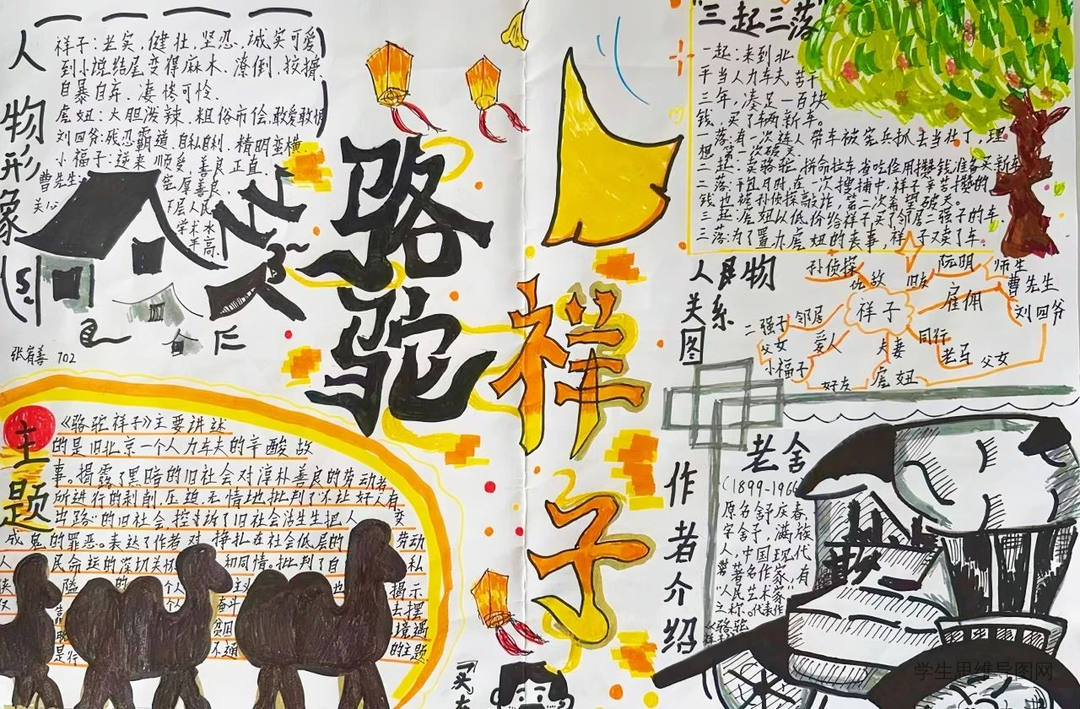 人物形象
祥子:老实,健壮,坚忍,诚实可爱
到小说结尾变得麻木、潦倒、狡猾、
自暴自弃、凄惨可怜.
虎妞:大胆泼辣、粗俗市侩、敢爱敢恨
刘四爷:残忍霸道,自私自利、精明蛮横
小福子:逆来顺受,善良正直
曹先生
宽厚善良
关心
下层人民
学术水
平高.
张宥善 702
骆驼
祥子
"三起三落"
一起:来到北
干当人力车夫,苦干
三年,凑足一百块
钱,买了辆新车。
一落:有一次连人带车被宪兵抓去当壮丁,理
想第一次破灭
二起:卖骆驼,拼命拉车,省吃俭用攒钱准备买新车
二落:干包月时,在一次搜捕中,祥子辛苦攒的
钱也被孙侦探敲诈,第二次希望破灭。
三起:虎妞以低价给祥子买了邻居二强子的车.
三落:为了置办虎妞的丧事,祥子又卖了车。
人物
关系
图
孙侦探
仇敌
阮明
师生
曹先生
祥子
雇佣
刘四爷
二强子
邻居
父女
爱人
夫妻
同行
老马
父女
小福子
好友
虎妞
主题
《骆驼祥子》主要讲述
的是旧北京一个人力车夫的辛酸故
事。揭露了黑暗的旧社会对淳朴善良的劳动者
所进行的剥削、压迫,无情地批判了不让好人有
出路的旧社会,控诉了旧社会活生生把人 变
成鬼的罪恶。表达了作者对 挣扎在社会低层的 劳动
人民命运的深切关 和同情。批判了自 私
作者介绍
老舍
(1899-1966
原名舒庆春,
字舍予,满族
人,中国现代
著名作家,有
"人民艺术家"
之称。代表作
《骆驼
学生思维导图网